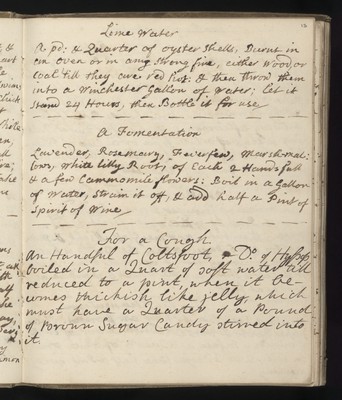 Lime Water
A pd: & Quarter of oyster shells, Burnt in
an oven or in any strong fire, either Wood, or
Coal till they are red hot: & then throw them
into a Winchester Gallon of Water; let it
stand 24 Hours, then Bottle it for use
A Fomentation
Lavender, Rosemary, Feverfew, Marshmal:
lows, White lilly Roots of Each 2 Handsfull
& a few Cammomile flowers: Boil in a Gallon
of Water, strain it off, & add half a Pint of
Spirit of Wine
For a Cough
An Handful of Coltsfoot, Do. of Hyssop
boiled in a Quart of soft water till
reduced to a pint, when it be-
comes thickish like jelly, which
must have a Quarter of a Pound
of Brown Sugar Candy stirred into
it